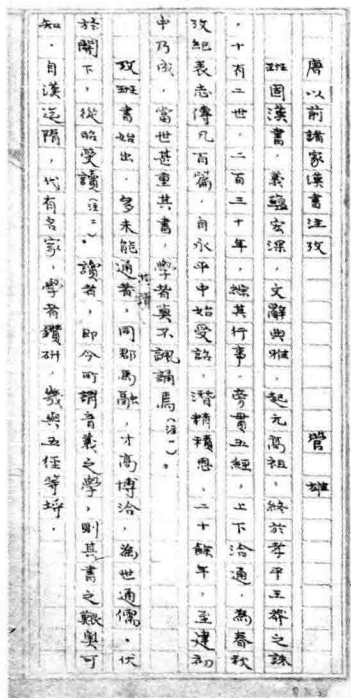 唐以前諸家漢書注攷　管雄
班固漢書，義蘊宏深，文辭典雅，起元高祖，終於孝平王莽之誅
，十有二世，二百三十年，綜其行事，旁貫五經，上下洽通，為春秋
攷紀表志傳凡百篇，自永平中始受詔，潛精積思，二十餘年，至建初
中乃成，當世甚重其書，學者莫不諷誦焉（注一）。
攷班書始出，多未能通者，同郡馬融，才高博洽，為世通儒。伏
於閣下，從昭受讀（注二）。讀者，即今所謂音義之學，則其書之艱奧可
知。自漢迄隋，代有名家，學者鑽研，幾與五經等埒，